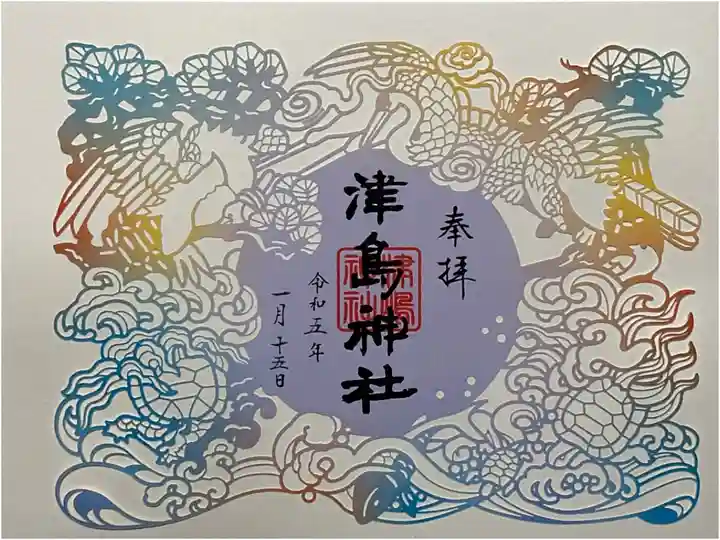 奉拝
津島神社
津嶋
神社
令和五年
一月十五日